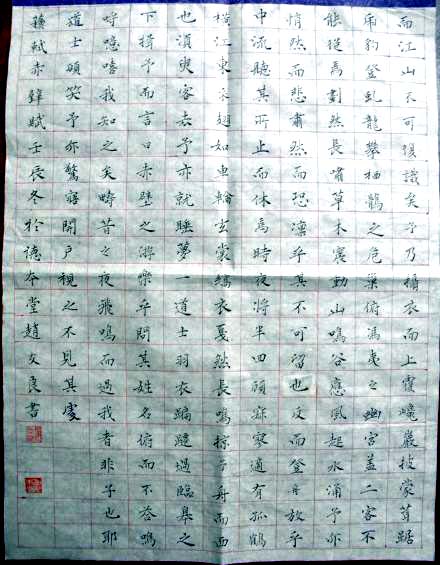 而江山不可復識矣予乃攝衣而上履巉巖披蒙茸踞
虎豹登虬龍攀栖鶻之危巢俯馮夷之幽宮蓋二客不
能從焉劃然長嘯草木震動山鳴谷應風起水涌予亦
悄然而悲肅然而恐凜乎其不可留也反而登舟放乎
中流聽其所止而休焉時夜將半四顧寂寥適有孤鶴
橫江東來翅如車輪玄裳縞衣戛然長鳴掠予舟而西
也須臾客去予亦就睡夢一道士羽衣蹁躚過臨皋之
下揖予而言曰赤壁之游樂乎問其姓名俯而不答嗚
呼噫嘻我知之矣疇昔之夜飛鳴而過我者非子也耶
道士顧笑予亦驚寤開戶視之不見其處
蘇軾赤壁賦壬辰冬於德本堂趙文良書